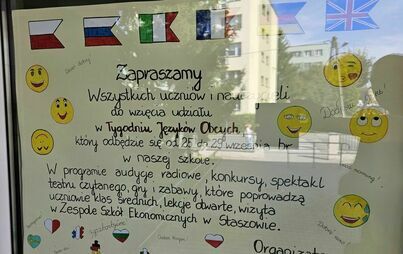 Dzień dobry
Zapraszamy
Wszystkich uczniów i nauczycieli
do wzięcia udziału
w Tygodniu Języków Obcych,
który odbędzie się od 25 do 29 września br.
w naszej szkole.
W programie audycje radiowe, konkursy, spektakl
teatru czytanego, gry i zabawy, które poprowadzą
uczniowie klas średnich, lekcje otwarte, wizyta
w Zespole Szkół Ekonomicznych w Staszowie.